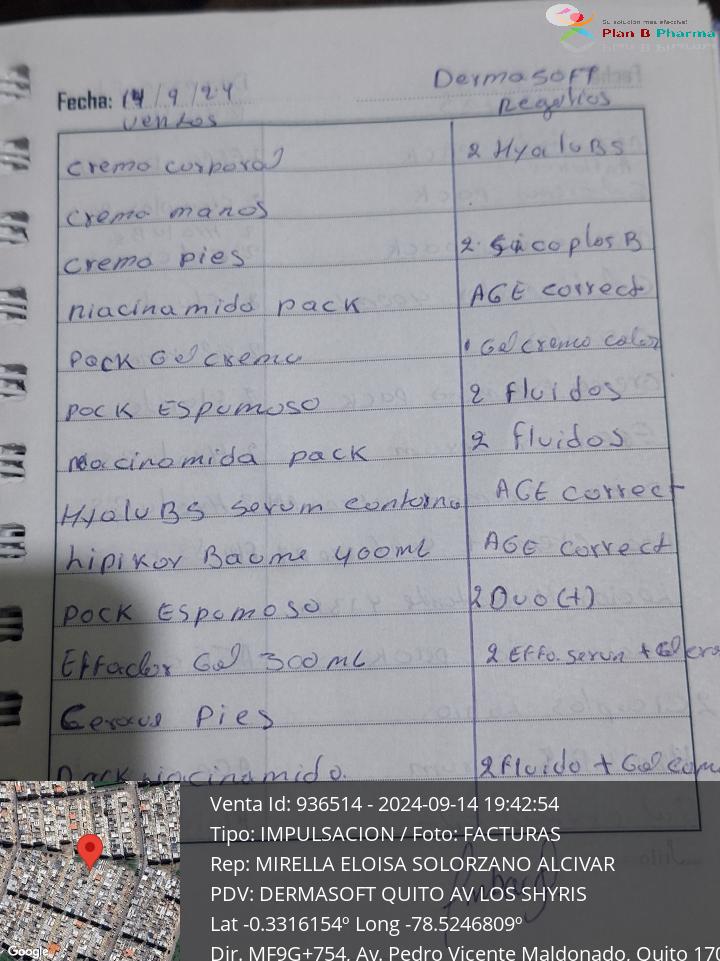 Su solución más efectiva!
Plan B Pharma
Dermasoft
Fecha: 14/9/24
ventas
Regalias
crema corporal
2 HyaluBS
crema manos
crema pies
2 Sicoplas B
niacinamida pack
AGE correct
Pack Gel crema
1 Gel crema color
Pack Espumoso
2 fluidos
niacinamida pack
2 fluidos
HyaluBS serum contorno
AGE correct
Lipikar Baume 400ml
AGE correct
Pack Espumoso
2 Duo (+)
Effaclar Gel 300 ML
2 Effa. serun + Gel
Cerave Pies
Pack niacinamida.
2 Fluido + Gel
Venta Id: 936514 - 2024-09-14 19:42:54
Tipo: IMPULSACION / Foto: FACTURAS
Rep: MIRELLA ELOISA SOLORZANO ALCIVAR
PDV: DERMASOFT QUITO AV LOS SHYRIS
Lat -0.3316154º Long -78.5246809º
Dir. MF9G+754, Av. Pedro Vicente Maldonado, Quito 170
Google